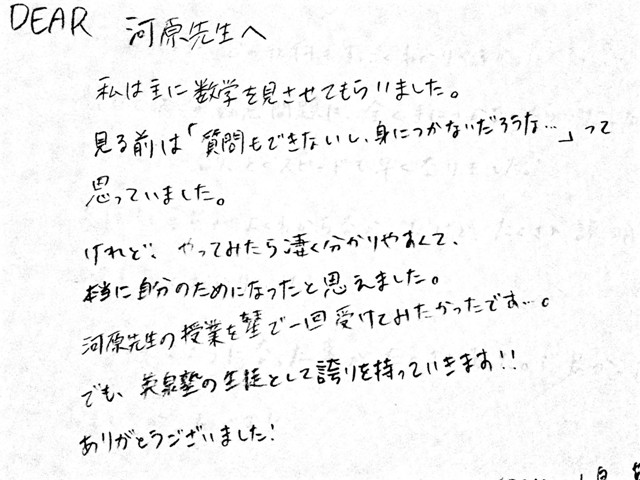 DEAR 河原先生へ
私は主に数学を見させてもらいました。
見る前は「質問もできないし、身につかないだろうな…」って
思っていました。
けれど、やってみたら凄く分かりやすくて、
本当に自分のためになったと思えました。
河原先生の授業を塾で一回受けてみたかったです…。
でも、英泉塾の生徒として誇りを持っていきます!!
ありがとうございました!